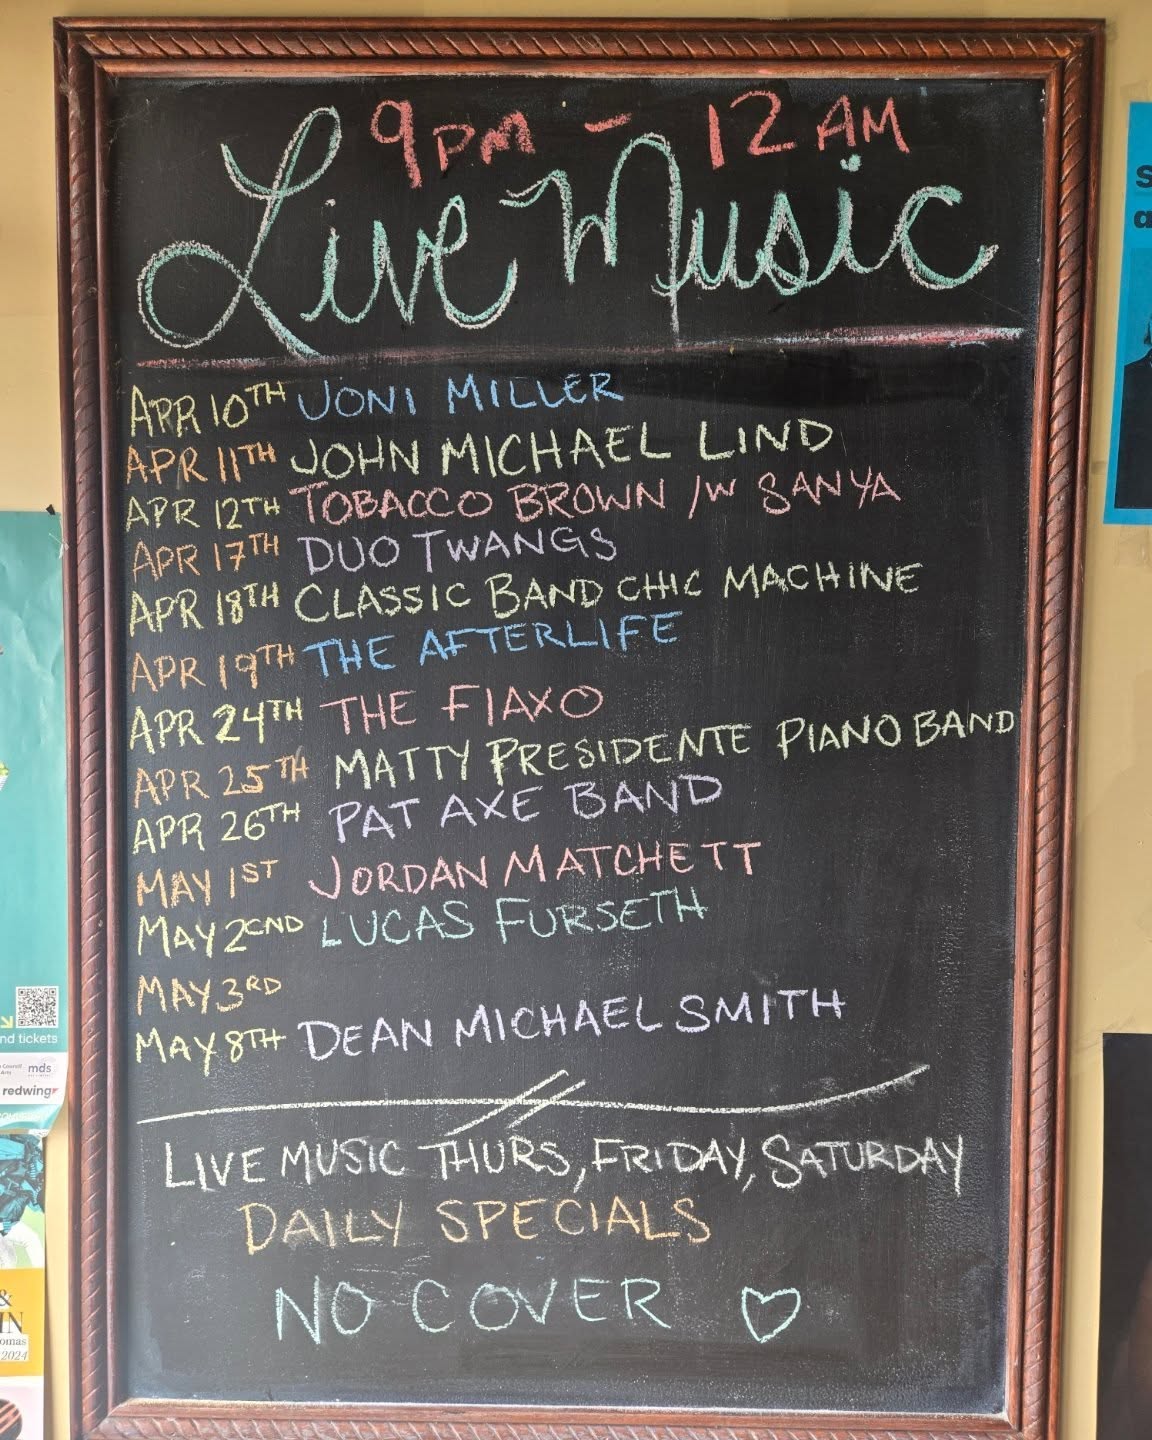 9PM - 12 AM
Live Music
APR 10TH JONI MILLER
APR 11TH JOHN MICHAEL LIND
APR 12TH TOBACCO BROWN /W SANYA
APR 17TH DUO TWANGS
APR 18TH CLASSIC BAND CHIC MACHINE
APR 19TH THE AFTERLIFE
APR 24TH THE FIAXO
APR 25TH MATTY PRESIDENTE PIANO BAND
APR 26TH PAT AXE BAND
MAY 1ST JORDAN MATCHETT
MAY 2CND LUCAS FURSETH
MAY 3RD
MAY 8TH DEAN MICHAEL SMITH
LIVE MUSIC THURS, FRIDAY, SATURDAY
DAILY SPECIALS
NO COVER
nd tickets
mds
redwing
&
IN
omas
2024
s
a